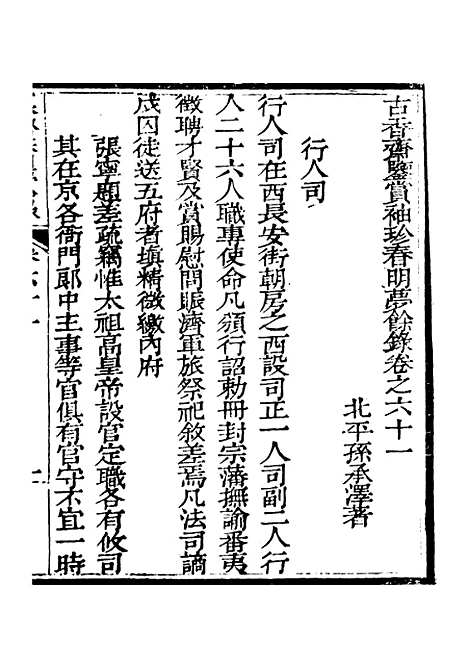 古香齋鑒賞袖珍春明夢餘錄卷之六十一
北平孫承澤著
行人司
行人司在西長安街朝房之西設司正一人司副二人行
人二十六人職專使命凡頒行詔勅冊封宗藩撫諭番夷
徵聘才賢及賞賜慰問賑濟軍旅祭祀敘差焉凡法司謫
戍囚徒送五府者填精微繳內府
張寧題差疏竊惟太祖高皇帝設官定職各有攸司
其在京各衙門郎中主事等官俱有官守不宜一時